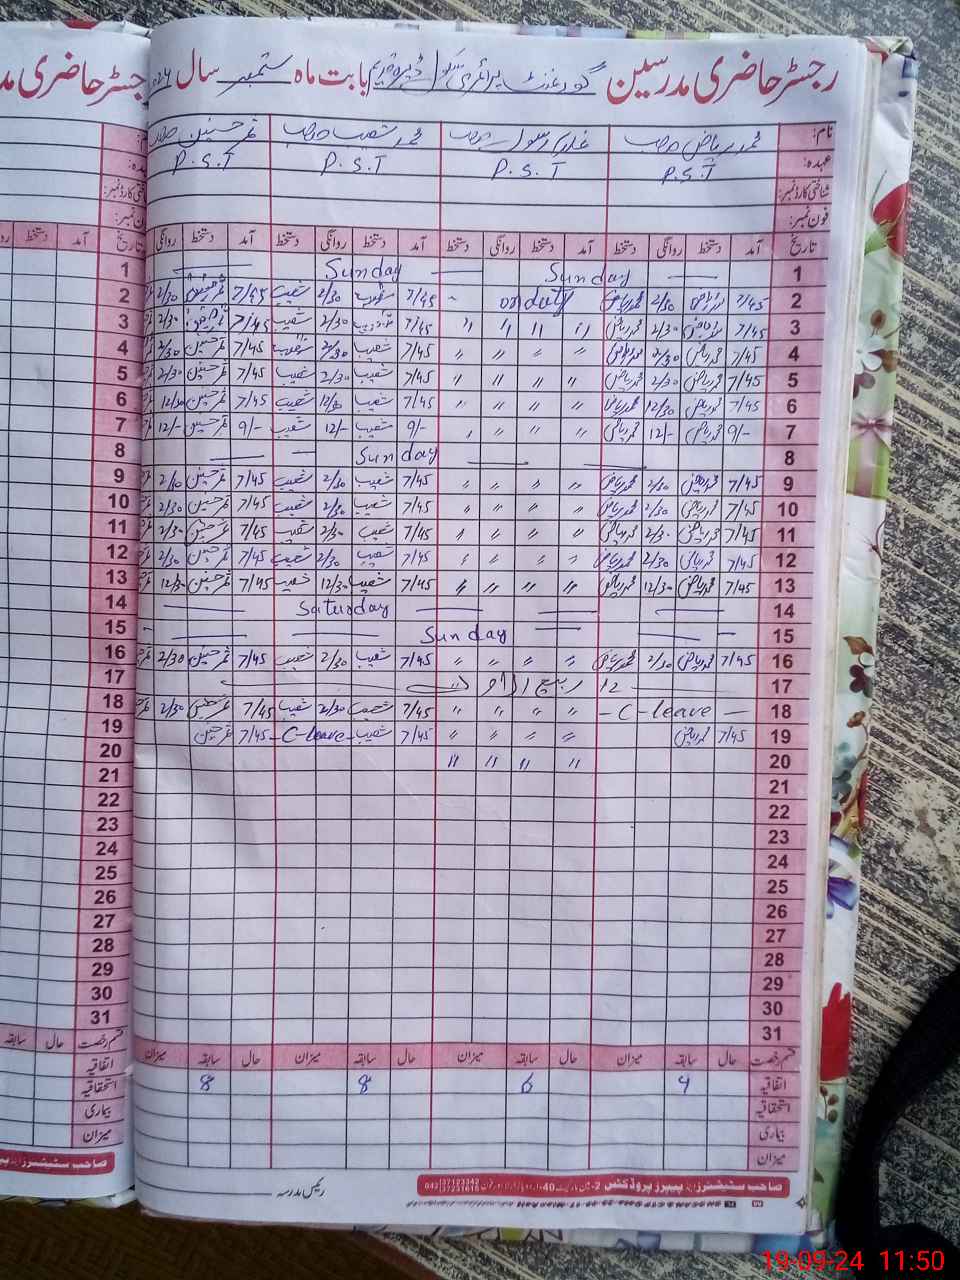 رجسٹر حاضری مدرسین گورنمنٹ پرائمری سکول بابت ماہ ستمبر سال
رجسٹر حاضری مد
نام: محمد ریاض صاحب غلام رسول صاحب محمد شعیب صاحب قمر حسنین صاحب
عہدہ: P.S.T P.S.T P.S.T P.S.T
شناختی کارڈ نمبر:
فون نمبر:
تاریخ آمد دستخط روانگی دستخط آمد دستخط روانگی دستخط آمد دستخط روانگی دستخط آمد دستخط روانگی
1 Sunday Sunday
2 7/45 2/30 محمد ریاض on duty 7/45 شعیب 2/30 شعیب 7/45 قمر حسنین 2/30
3 7/45 2/30 محمد ریاض 〃 〃 〃 〃 7/45 2/30 شعیب 7/45 2/30
4 7/45 محمد ریاض 2/30 محمد ریاض 〃 〃 〃 〃 7/45 شعیب 2/30 شعیب 7/45 قمر حسنین 2/30
5 7/45 محمد ریاض 2/30 محمد ریاض 〃 〃 〃 〃 7/45 شعیب 2/30 شعیب 7/45 قمر حسنین 2/30
6 7/45 محمد ریاض 12/30 محمد ریاض 〃 〃 〃 〃 7/45 شعیب 12/30 شعیب 7/45 قمر حسنین 12/30
7 9/- محمد ریاض 12/- محمد ریاض 〃 〃 〃 〃 9/- شعیب 12/- شعیب 9/- قمر حسنین 12/-
8 Sunday
9 7/45 محمد ریاض 2/30 محمد ریاض 〃 〃 〃 〃 7/45 شعیب 2/30 شعیب 7/45 قمر حسنین 2/30
10 7/45 محمد ریاض 2/30 محمد ریاض 〃 〃 〃 〃 7/45 شعیب 2/30 شعیب 7/45 قمر حسنین 2/30
11 7/45 محمد ریاض 2/30 محمد ریاض 〃 〃 〃 〃 7/45 شعیب 2/30 شعیب 7/45 قمر حسنین 2/30
12 7/45 محمد ریاض 2/30 محمد ریاض 〃 〃 〃 〃 7/45 شعیب 2/30 شعیب 7/45 قمر حسنین 2/30
13 7/45 محمد ریاض 12/30 محمد ریاض 〃 〃 〃 〃 7/45 شعیب 12/30 شعیب 7/45 قمر حسنین 12/30
14 Saturday
15 Sunday
16 7/45 محمد ریاض 2/30 محمد ریاض 〃 〃 〃 〃 7/45 شعیب 2/30 شعیب 7/45 قمر حسنین 2/30
17 12 ربیع الاول
18 -C-leave- 〃 〃 〃 〃 7/45 شعیب 2/30 شعیب 7/45 قمر حسنین 2/30
19 7/45 محمد ریاض 〃 〃 〃 〃 7/45 شعیب -C-leave- 7/45 قمر حسنین
20 〃 〃 〃 〃
21
22
23
24
25
26
27
28
29
30
31
قسم رخصت حال سابقہ میزان حال سابقہ میزان حال سابقہ میزان حال سابقہ میزان
اتفاقیہ 4 6 8 8
استحقاقیہ
بیماری
میزان
صاحب سٹیشنرز اینڈ پیپرز پروڈکٹس
رئیس مدرسہ
تاریخ آمد دستخط
1
2
3
4
5
6
7
8
9
10
11
12
13
14
15
16
17
18
19
20
21
22
23
24
25
26
27
28
29
30
31
قسم رخصت حال سابقہ
اتفاقیہ
استحقاقیہ
بیماری
میزان
صاحب سٹیشنرز اینڈ
19-09-24 11:50